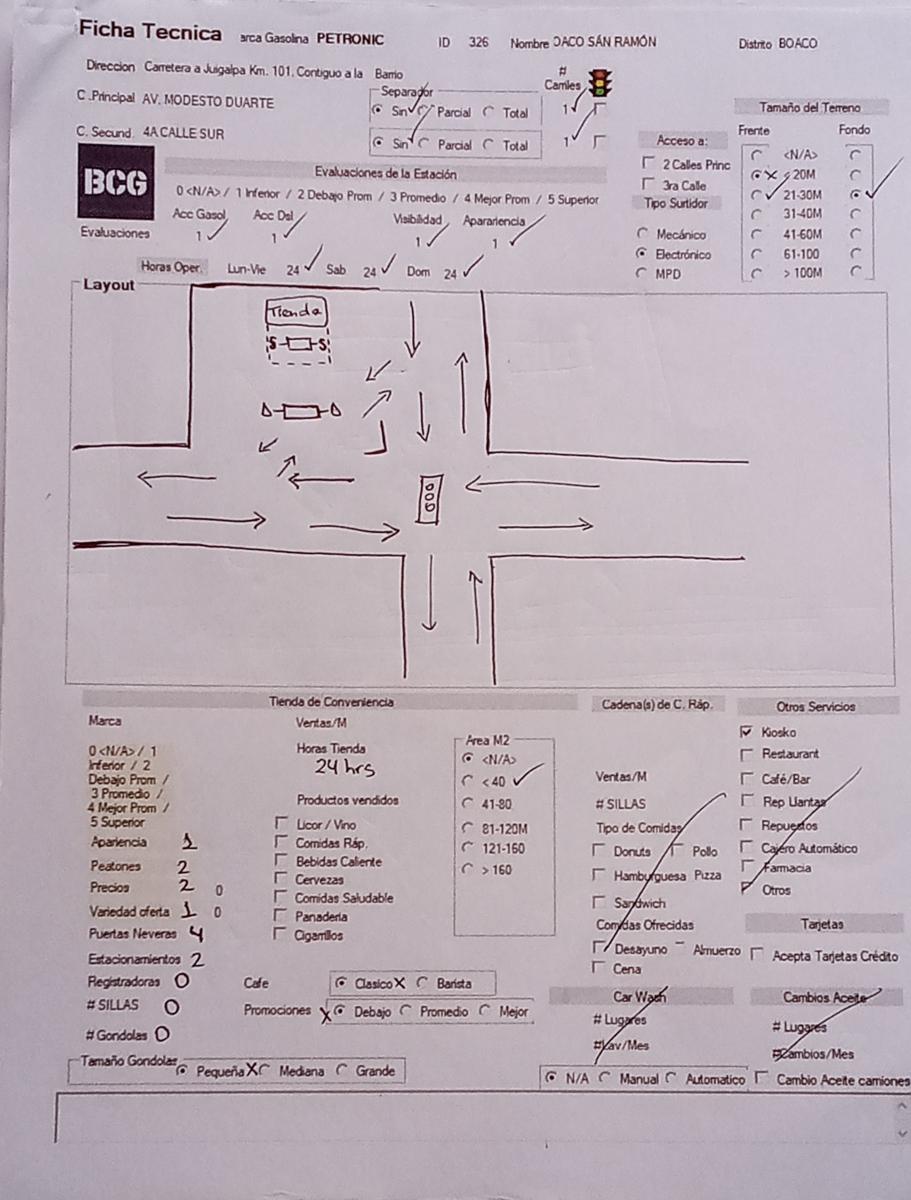 Ficha Tecnica arca Gasolina PETRONIC ID 326 Nombre OACO SÁN RAMÓN Distrito BOACO
Direccion Carretera a Juigalpa Km. 101, Contiguo a la Barrio
# Carriles
C .Principal AV. MODESTO DUARTE
Separador
Sin Parcial Total 1
C. Secund. 4A CALLE SUR
Sin Parcial Total 1
Acceso a:
2 Calles Princ
3ra Calle
Tipo Surtidor
Mecánico
Electrónico
MPD
Tamaño del Terreno
Frente Fondo
<N/A>
< 20M
21-30M
31-40M
41-60M
61-100
> 100M
BCG
Evaluaciones de la Estación
0 <N/A> / 1 Inferior / 2 Debajo Prom / 3 Promedio / 4 Mejor Prom / 5 Superior
Acc Gasol Acc Dsl Visibilidad Aparariencia
Evaluaciones 1 1 1 1
Horas Oper. Lun-Vie 24 Sab 24 Dom 24
Layout
Tienda
S S
Tienda de Conveniencia
Marca
0 <N/A> / 1
Inferior / 2
Debajo Prom /
3 Promedio /
4 Mejor Prom /
5 Superior
Apariencia 1
Peatones 2
Precios 2 0
Variedad oferta 1 0
Puertas Neveras 4
Estacionamientos 2
Registradoras 0
# SILLAS 0
# Gondolas 0
Ventas/M
Horas Tienda
24 hrs
Productos vendidos
Licor / Vino
Comidas Ráp.
Bebidas Caliente
Cervezas
Comidas Saludable
Panaderia
Cigarrillos
Area M2
<N/A>
<40
41-80
81-120M
121-160
> 160
Cafe Clasico X Barista
Promociones X Debajo Promedio Mejor
Tamaño Gondolas
Pequeña X Mediana Grande
Cadena(s) de C. Ráp.
Ventas/M
# SILLAS
Tipo de Comidas
Donuts Pollo
Hamburguesa Pizza
Sandwich
Comidas Ofrecidas
Desayuno Almuerzo
Cena
Car Wash
# Lugares
#Lav/Mes
N/A Manual Automatico
Otros Servicios
Kiosko
Restaurant
Café/Bar
Rep Llantas
Repuestos
Cajero Automático
Farmacia
Otros
Tarjetas
Acepta Tarjetas Crédito
Cambios Aceite
# Lugares
#Cambios/Mes
Cambio Aceite camiones